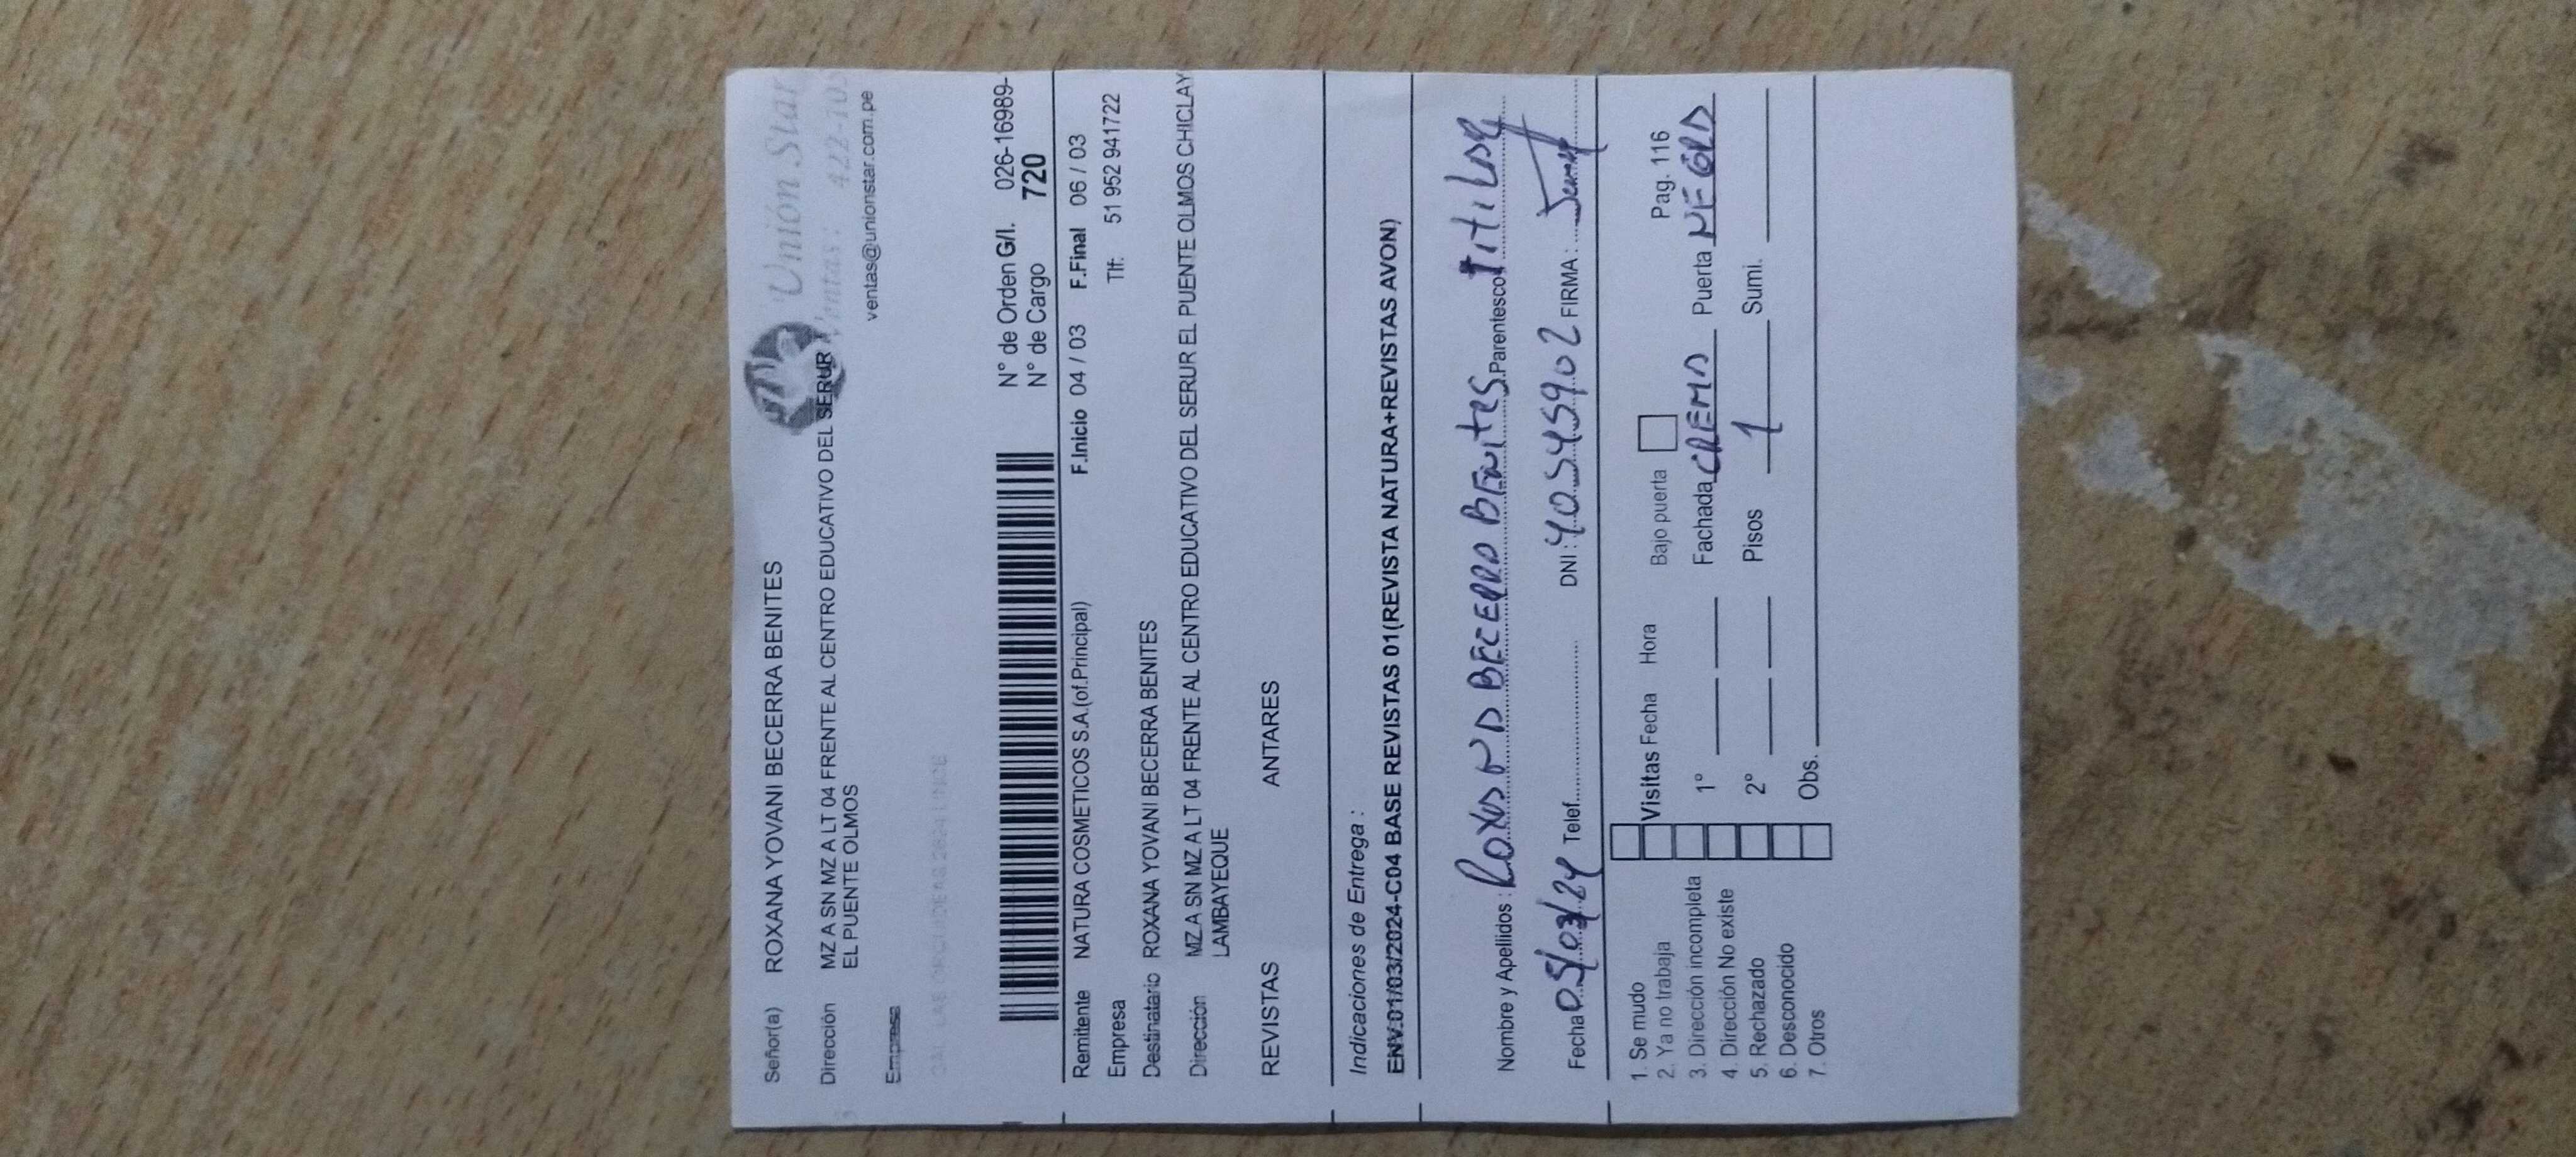 Unión Star
Ventas: 422-10
ventas@unionstar.com.pe
Señor(a) ROXANA YOVANI BECERRA BENITES
Dirección MZ A SN MZ A LT 04 FRENTE AL CENTRO EDUCATIVO DEL SERUR
EL PUENTE OLMOS
Empresa
N° de Orden G/I. 026-16989-
N° de Cargo 720
Remitente NATURA COSMETICOS S.A.(of.Principal) F.Inicio 04 / 03 F.Final 06 / 03
Empresa Tlf: 51 952 941722
Destinatario ROXANA YOVANI BECERRA BENITES
Dirección MZ A SN MZ A LT 04 FRENTE AL CENTRO EDUCATIVO DEL SERUR EL PUENTE OLMOS CHICLAY
LAMBAYEQUE
REVISTAS ANTARES
Indicaciones de Entrega :
ENV.01/03/2024-C04 BASE REVISTAS 01(REVISTA NATURA+REVISTAS AVON)
Nombre y Apellidos : Roxana BECERRA BENITES Parentesco titular
Fecha 05/03/24 Telef. DNI: 40545902 FIRMA :
1. Se mudo
2. Ya no trabaja
3. Dirección incompleta
4. Dirección No existe
5. Rechazado
6. Desconocido
7. Otros
Visitas Fecha Hora Bajo puerta Pag. 116
1° Fachada CREMA Puerta NEGRA
2° Pisos 1 Sumi.
Obs.